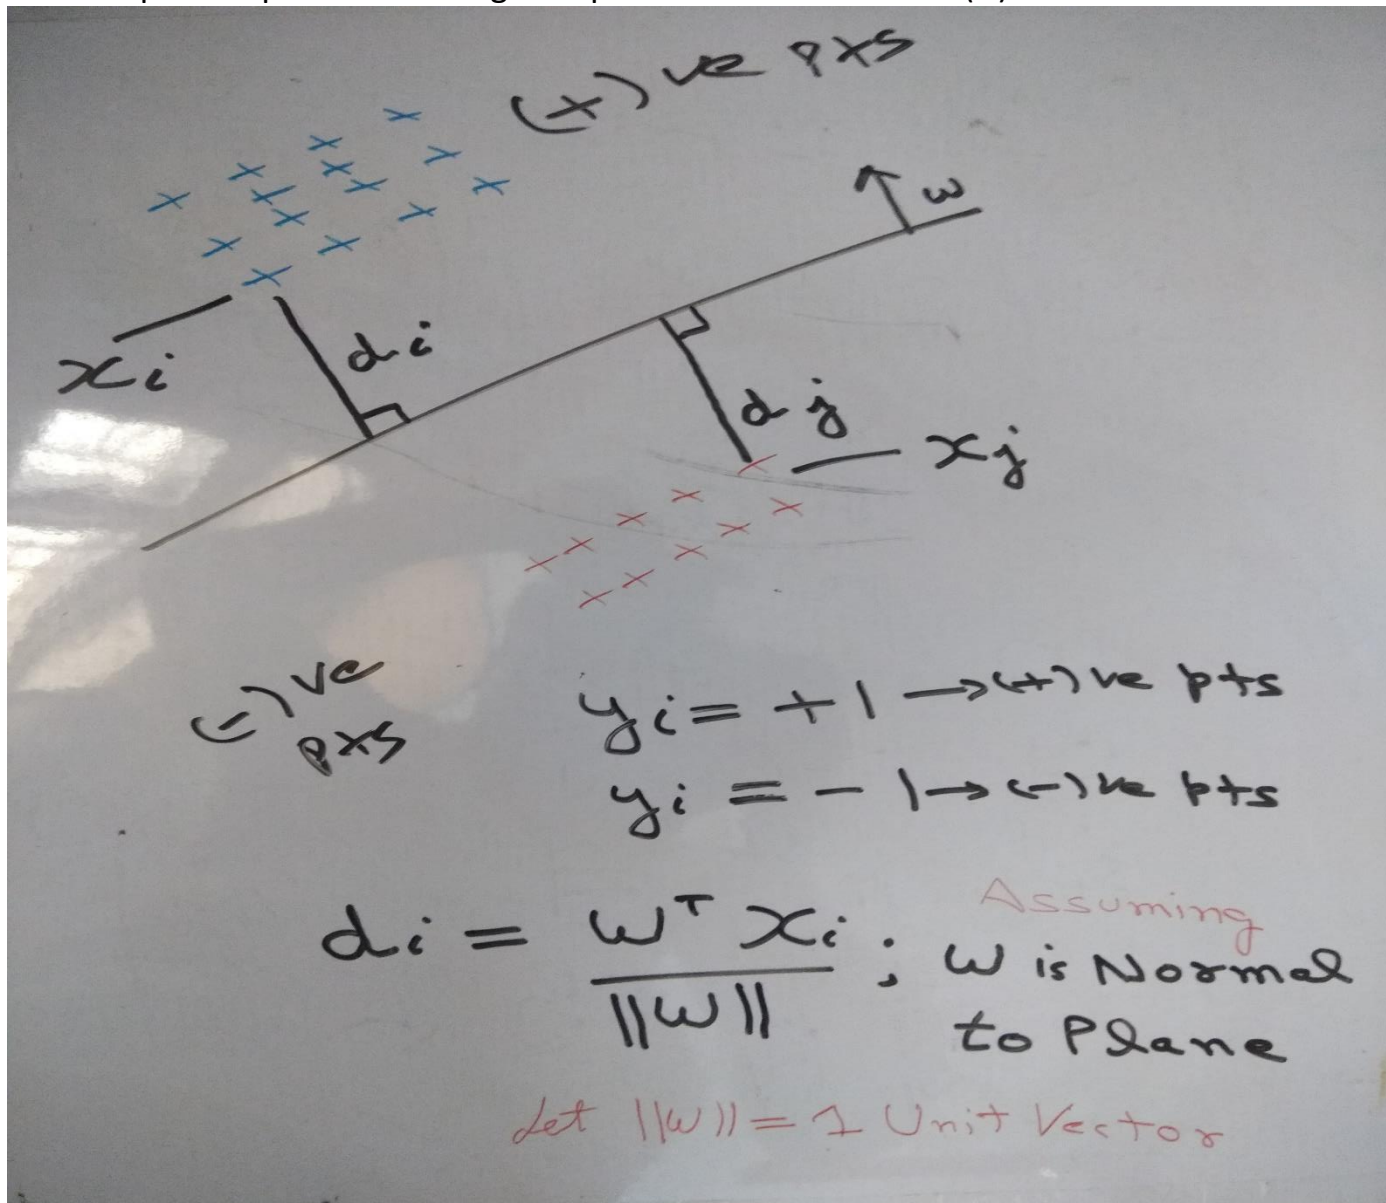 (+)ve pts
w
xi
di
dj
xj
(-)ve
pts
yi = +1 → (+)ve pts
yi = -1 → (-)ve pts
Assuming
di = wᵀ xi / ||w|| ; w is Normal
to Plane
Let ||w|| = 1 Unit Vector